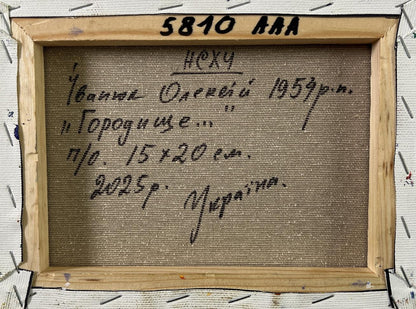 5810 AAA
НСХУ
Іванюк Олексій 1954р.н.
„Городище..."
п/о. 15×20 см.
2025р.
Україна.